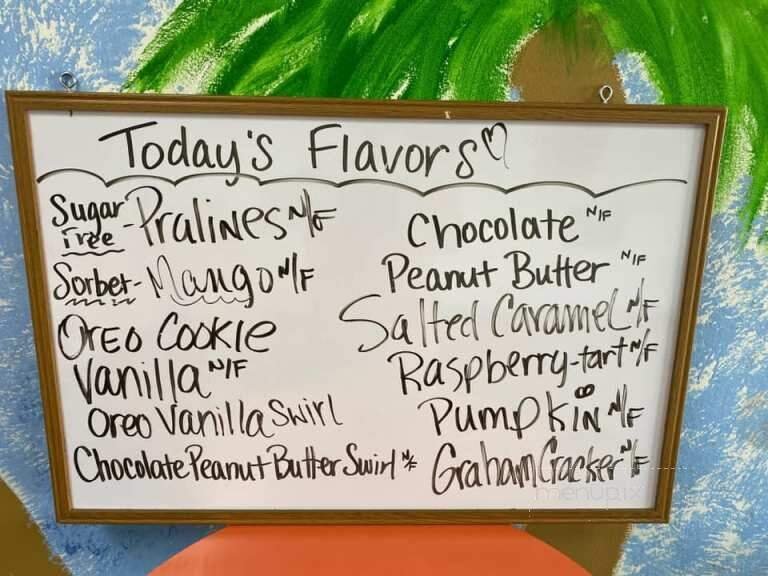 Today's Flavors
Sugar Free - Pralines N/F
Sorbet - Mango N/F
Oreo Cookie
Vanilla N/F
Oreo Vanilla Swirl
Chocolate Peanut Butter Swirl N/F
Chocolate N/F
Peanut Butter N/F
Salted Caramel N/F
Raspberry-tart N/F
Pumpkin N/F
Graham Cracker N/F
menupix